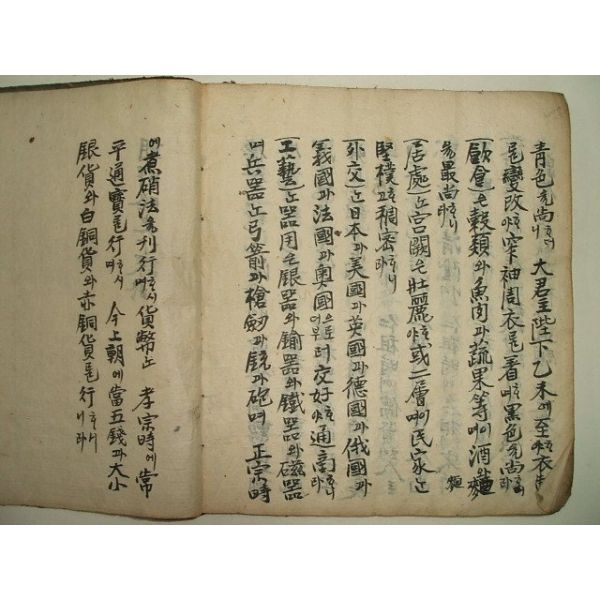 靑色을尙하더니 大君主陛下乙未에至하여衣制
를變改하야窄袖周衣를着하며黑色을尙하
(飮食)은穀類와魚肉과蔬果等이며酒와麵
을最尙하나니
(居處)는宮闕은壯麗하야或二層이며民家는
堅樸고稠密하니라
(外交)는日本과美國과英國과德國과俄國과
義國과法國과奧國으로더부러交好하야通商하니라
(工藝)는器用은銀器와鍮器와鐵器와磁器
며兵器는弓箭과槍劒과銃과砲며 正宗時
에煮硝法을刊行하시며貨幣는 孝宗時에常
平通寶를行하시며 今上朝에當五錢과大小
銀貨와白銅貨와赤銅貨를行하시니라